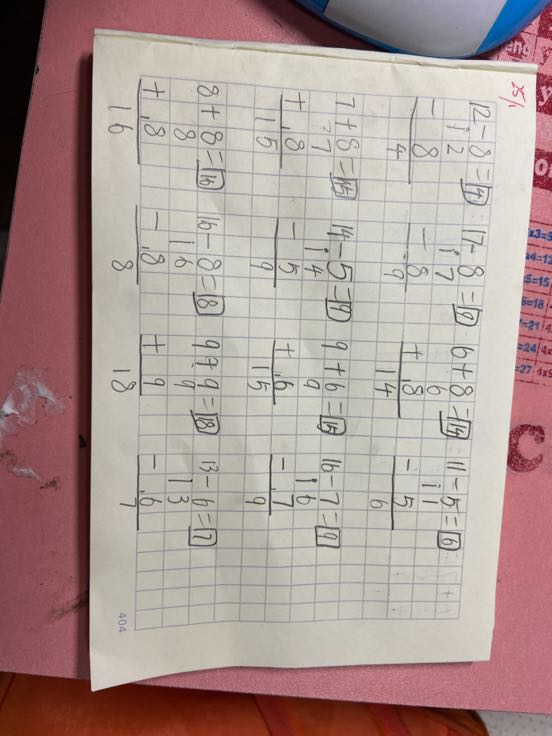 25/1
12-8=4 17-8=9 6+8=14 11-5=6
12 17 6 11
-8 -8 +8 -5
4 9 14 6
7+8=15 14-5=9 9+6=15 16-7=9
7 14 9 16
+8 -5 +6 -7
15 9 15 9
8+8=16 16-8=8 9+9=18 13-6=7
8 16 9 13
+8 -8 +9 -6
16 8 18 7
404
x3=9
x4=12
5=15
6=18
=21
=24
=27